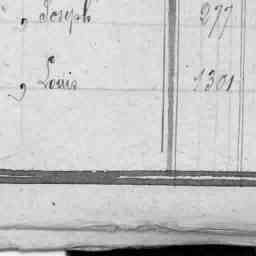 " , Joseph 277
, Louis 1301